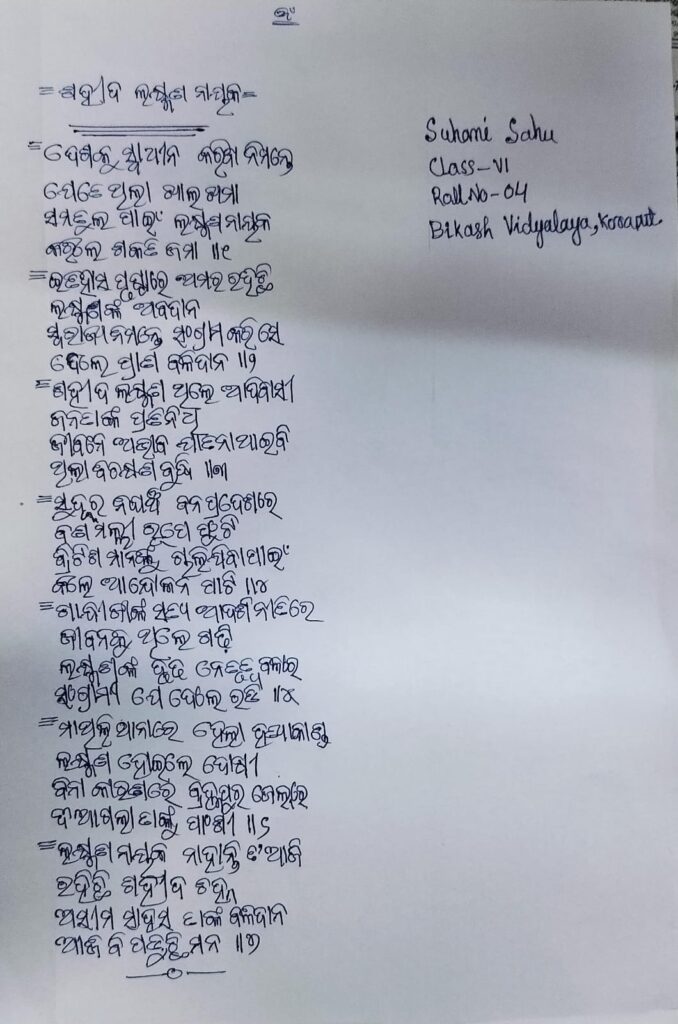 = ଶହୀଦ ଲକ୍ଷ୍ମଣ ନାୟକ =
Suhani Sahu
Class-VI
Roll No-04
Bikash Vidyalaya, Koraput
ଦେଶକୁ ସ୍ୱାଧୀନ କରିବା ନିମନ୍ତେ
ଯେତେ ଥିଲା
ପାଇଁ ଲକ୍ଷ୍ମଣ ନାୟକ
କରିଲେ ଶକତି ଜମା ॥୧
ଇତିହାସ ପୃଷ୍ଠାରେ ଅମର ରହିଛି
ଲକ୍ଷ୍ମଣଙ୍କ ଅବଦାନ
ସ୍ୱରାଜ୍ୟ ନିମନ୍ତେ ସଂଗ୍ରାମ କରି ସେ
ଦେଲେ ପ୍ରାଣ ବଳିଦାନ ॥୨
ଶହୀଦ ଲକ୍ଷ୍ମଣ ଥିଲେ ଆଦିବାସୀ
ଜନତାଙ୍କ ପ୍ରତିନିଧି
ଜୀବନେ ଅଭାବ ଯାତନା ପାଇବି
ଥିଲା ବିଚକ୍ଷଣ ବୁଦ୍ଧି ॥୩
ସୁଦୂର ବନ ପ୍ରଦେଶରେ
ବଣ ମଲ୍ଲୀ ରୂପେ ଫୁଟି
ବ୍ରିଟିଶ ମାନଙ୍କୁ ପାଇଁ
କଲେ ଆନ୍ଦୋଳନ ପାଟି ॥୪
ଗାନ୍ଧୀଜୀଙ୍କ ସତ୍ୟ ଆଦର୍ଶ ନୀତିରେ
ଜୀବନକୁ ଥିଲେ ଗଢ଼ି
ଲକ୍ଷ୍ମଣଙ୍କ ଦୃଢ ନେତୃତ୍ୱ ବଳରେ
ସଂଗ୍ରାମୀ ଯେ ଦେଲେ ରଡି ॥୫
ମାଥିଲି ଥାନାରେ ହେଲା ହତ୍ୟାକାଣ୍ଡ
ଲକ୍ଷ୍ମଣ ହୋଇଲେ ଦୋଷୀ
ବିନା କାରଣରେ ବ୍ରହ୍ମପୁର ଜେଲରେ
ଦିଆଗଲା ତାଙ୍କୁ ଫାଂଶୀ ॥୬
ଲକ୍ଷ୍ମଣ ନାୟକ ନାହାନ୍ତି ତ'ଆଜି
ରହିଛି ଶହୀଦ ଚିହ୍ନ
ଅସୀମ ସାହସ ତାଙ୍କ ବଳିଦାନ
ଆଜି ବି ପଡୁଛି ମନ ॥୭